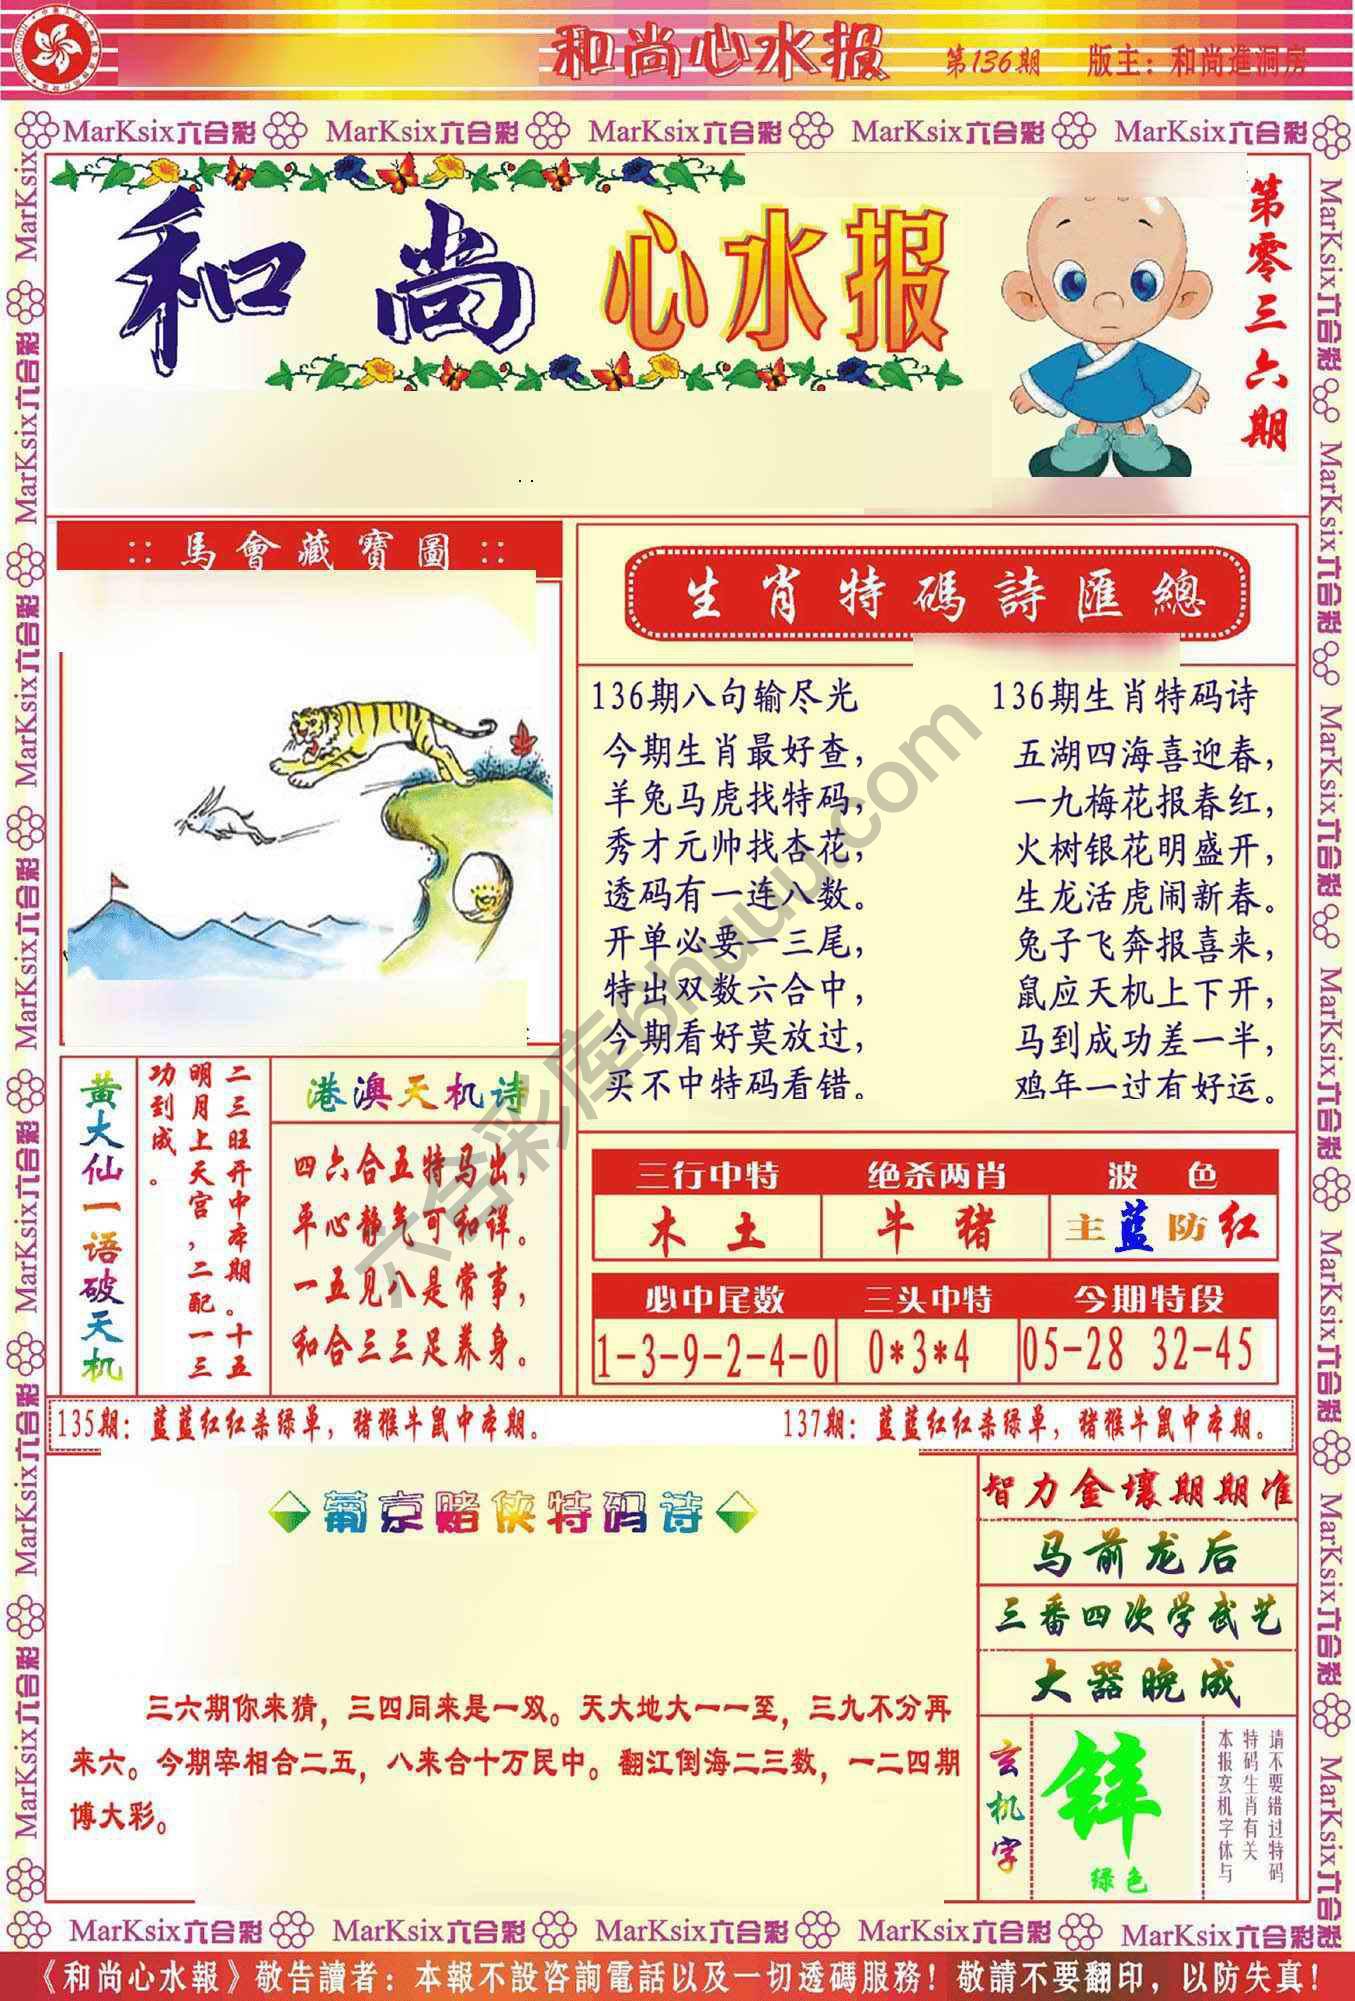 和尚心水报
第136期
版主：和尚進洞房
MarKsix六合彩 MarKsix六合彩 MarKsix六合彩 MarKsix六合彩 MarKsix六合彩
和尚心水报
第零三六期
::馬會藏寶圖::
生肖特碼詩匯總
136期八句输尽光
今期生肖最好查，
羊兔马虎找特码，
秀才元帅找杏花，
透码有一连八数。
开单必要一三尾，
特出双数六合中，
今期看好莫放过，
买不中特码看错。
136期生肖特码诗
五湖四海喜迎春，
一九梅花报春红，
火树银花明盛开，
生龙活虎闹新春。
兔子飞奔报喜来，
鼠应天机上下开，
马到成功差一半，
鸡年一过有好运。
黄大仙一语破天机
二三旺开中本期。十五
明月上天宫，二配一三
功到成。
港澳天机诗
四六合五特马出，
平心静气可和详。
一五见八是常事，
和合三三足养身。
三行中特 绝杀两肖 波色
木土 牛猪 主蓝防红
必中尾数 三头中特 今期特段
1-3-9-2-4-0 0*3*4 05-28 32-45
135期：蓝蓝红红杀绿单，猪猴牛鼠中本期。
137期：蓝蓝红红杀绿单，猪猴牛鼠中本期。
葡京赌侠特码诗
三六期你来猜，三四同来是一双。天大地大一一至，三九不分再
来六。今期宰相合二五，八来合十万民中。翻江倒海二三数，一二四期
博大彩。
智力金壤期期准
马前龙后
三番四次学武艺
大器晚成
玄机字
锌
绿色
请不要错过特码
特码生肖有关
本报玄机字体与
六合彩库6huuu.com
MarKsix六合彩 MarKsix六合彩 MarKsix六合彩 MarKsix六合彩 MarKsix六合彩
《和尚心水報》敬告讀者：本報不設咨詢電話以及一切透碼服務！敬請不要翻印，以防失真！